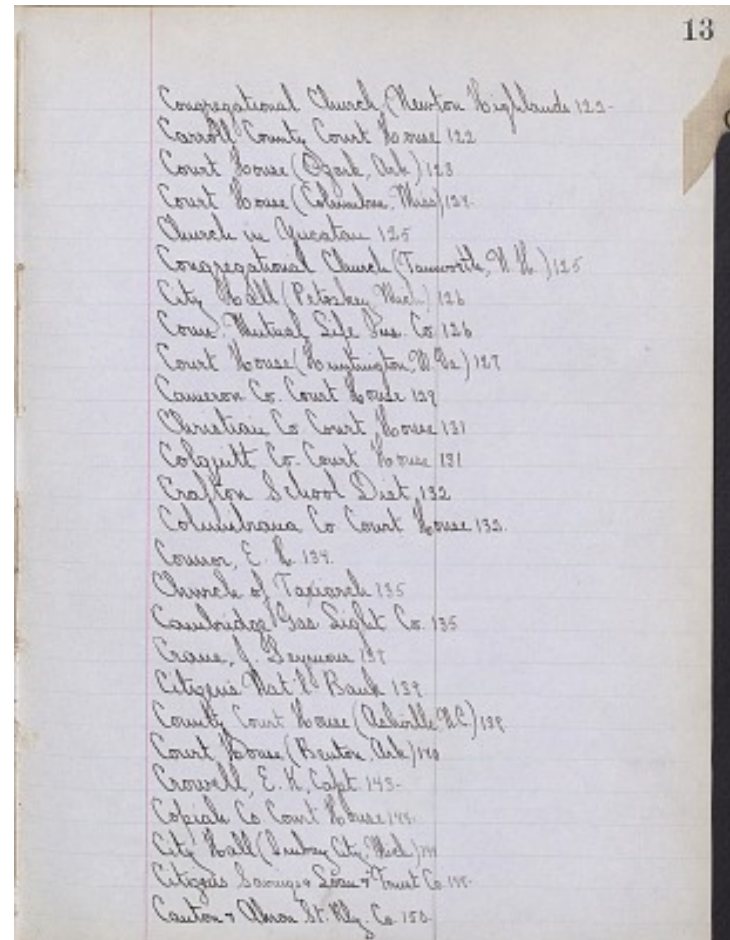 13
Congregational Church (Newton Highlands 122-
Carroll County Court House 122
Court House (Ozark, Ark.) 123
Court House (Columbus, Miss) 124.
Church in Yucatan 125
Congregational Church (Tamworth, N. H.) 125
City Hall (Petoskey Mich.) 126
Conn. Mutual Life Ins. Co. 126
Court House (Huntington, W. Va.) 127
Cameron Co. Court House 129
Christian Co. Court House 131
Colquitt Co. Court House 131
Crafton School Dist. 132
Columbiana Co Court House 133.
Connor, E. H. 134.
Church of Taxiarch 135
Cambridge Gas Light Co. 135
Crane, J. Seymour 137
Citizens Nat'l Bank 139
County Court House (Asheville N.C.) 139
Court House (Benton, Ark) 140
Crowell, E. K, Capt. 143-
Copiah Co Court House 144.
City Hall ( City, Mich.) 144
Citizens Savings & Loan & Trust Co. 148-
Canton & Akron St. Rly. Co. 150